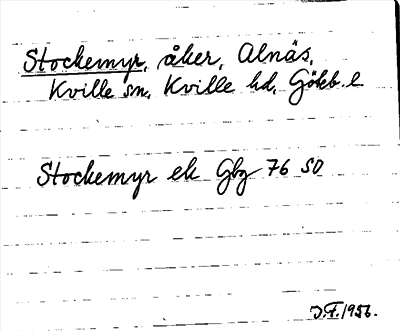 Stockemyr, åker, Alnäs,
Kville sn, Kville hd, Göteb. l
Stockemyr ek Gbg 76 SO
J.F. 1956.